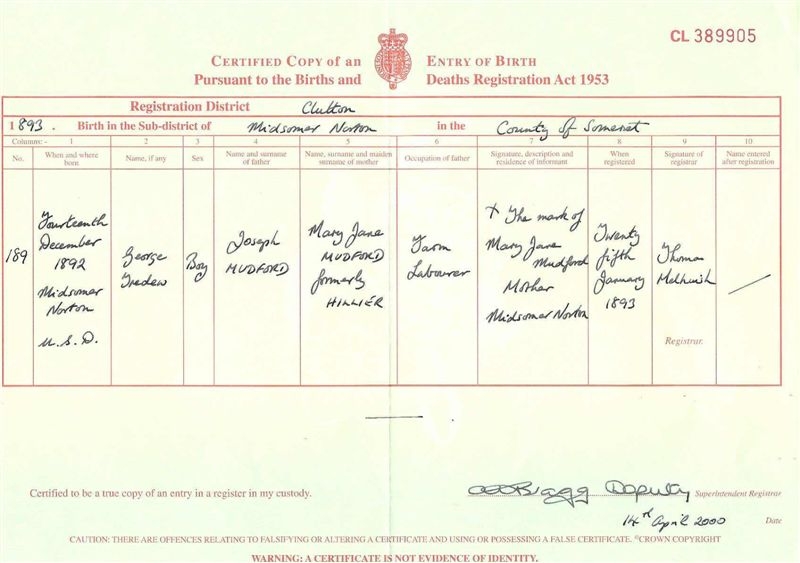 CL 389905
CERTIFIED COPY OF AN ENTRY OF BIRTH
PURSUANT TO THE BIRTHS AND DEATHS REGISTRATION ACT 1953
Registration District Clutton
1893. Birth in the Sub-district of Midsomer Norton in the County of Somerset
Columns:- 1 2 3 4 5 6 7 8 9 10
No. When and where born Name, if any Sex Name and surname of father Name, surname and maiden surname of mother Occupation of father Signature, description and residence of informant When registered Signature of registrar Name entered after registration
189
Fourteenth
December
1892
Midsomer
Norton
U.S.D.
George
Tredew
Boy
Joseph
MUDFORD
Mary Jane
MUDFORD
formerly
HILLIER
Farm
Labourer
X The mark of
Mary Jane
Mudford
Mother
Midsomer Norton
Twenty
fifth
January
1893
Thomas
Melhuish
Registrar.
Certified to be a true copy of an entry in a register in my custody.
Bragg Deputy Superintendent Registrar
14th April 2000 Date
CAUTION: THERE ARE OFFENCES RELATING TO FALSIFYING OR ALTERING A CERTIFICATE AND USING OR POSSESSING A FALSE CERTIFICATE. ©CROWN COPYRIGHT
WARNING: A CERTIFICATE IS NOT EVIDENCE OF IDENTITY.